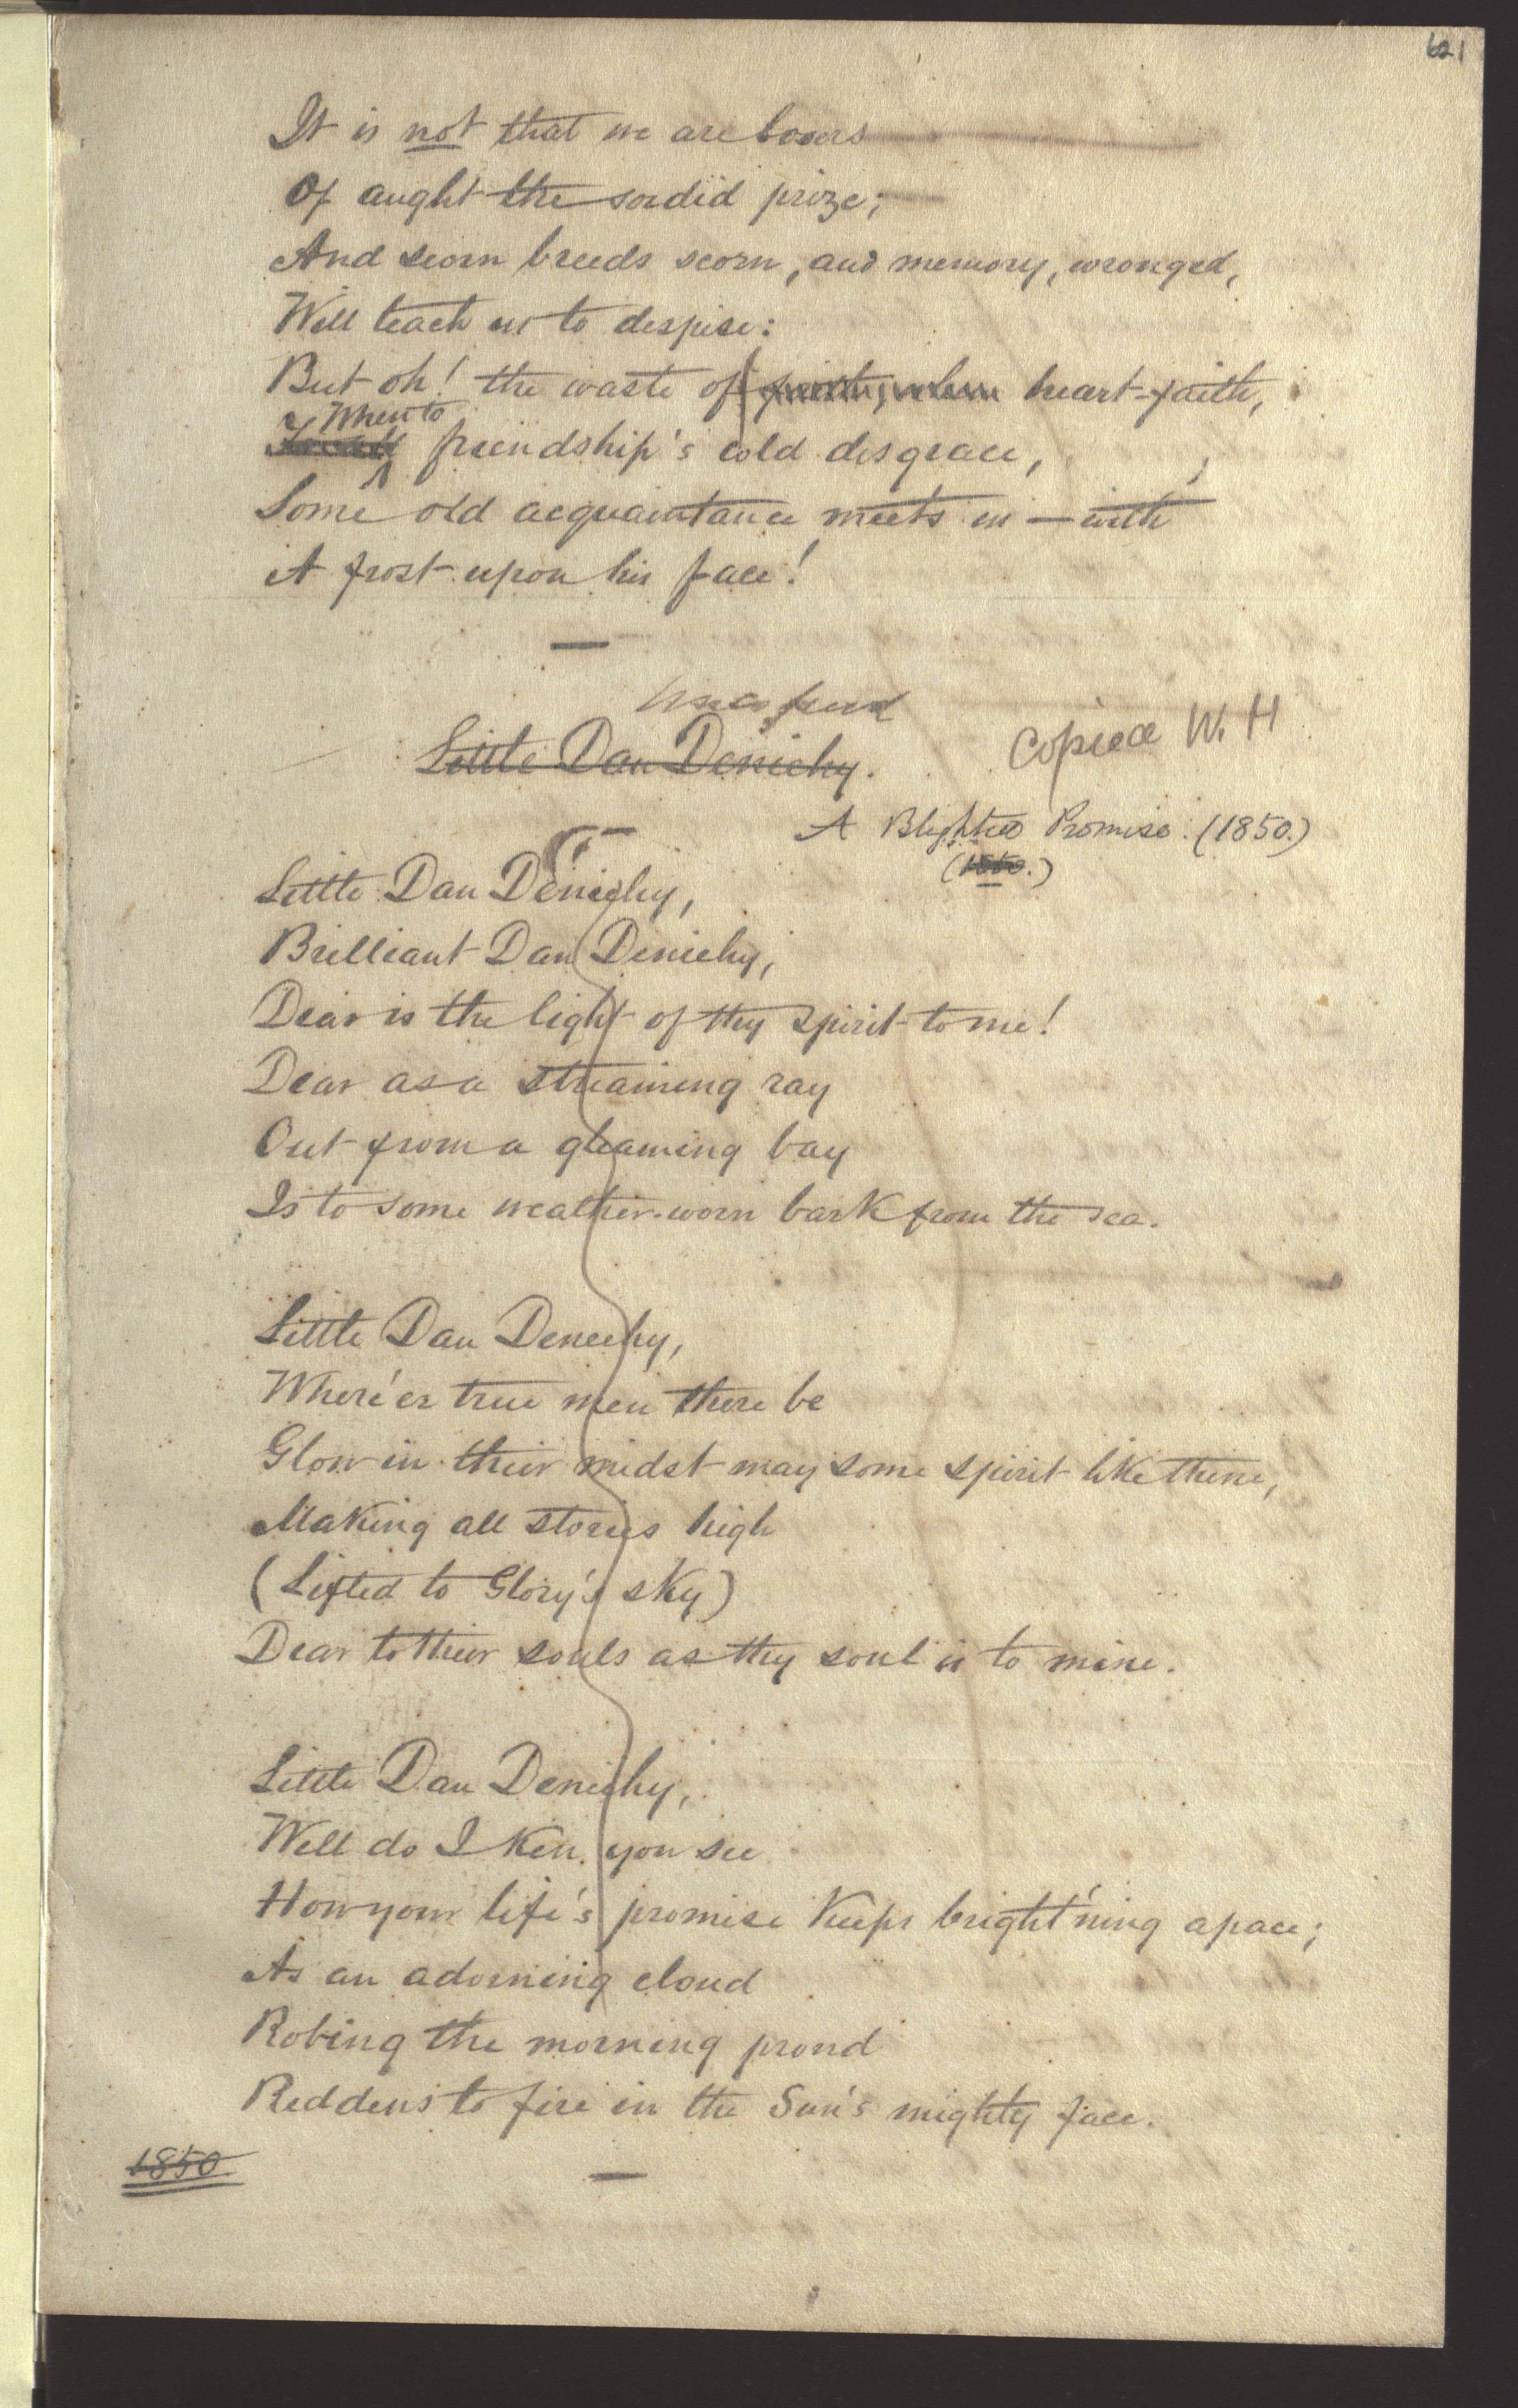 621
It is not that we are losers
Of aught the sordid prize;
And scorn breeds scorn, and memory, wronged,
Will teach us to despise:
But oh! the waste of heart-faith,
When to
friendship's cold disgrace,
Some old acquaintance meets us — with
A frost upon his face!
Little Dan Deniehy.
Copied W. H
A Blighted Promise. (1850.)
(1850.)
Little Dan Deniehy,
Brilliant Dan Deniehy,
Dear is the light of thy spirit to me!
Dear as a streaming ray
Out from a gleaming bay
Is to some weather-worn bark from the sea.
Little Dan Deniehy,
Where'er true men there be
Glow in their midst may some spirit like thine,
Making all stories high
(Lifted to Glory's sky)
Dear to their souls as thy soul is to mine.
Little Dan Deniehy,
Well do I ken, you see
How your life's promise keeps bright'ning apace;
As an adorning cloud
Robing the morning proud
Reddens to fire in the Sun's mighty face.
1850